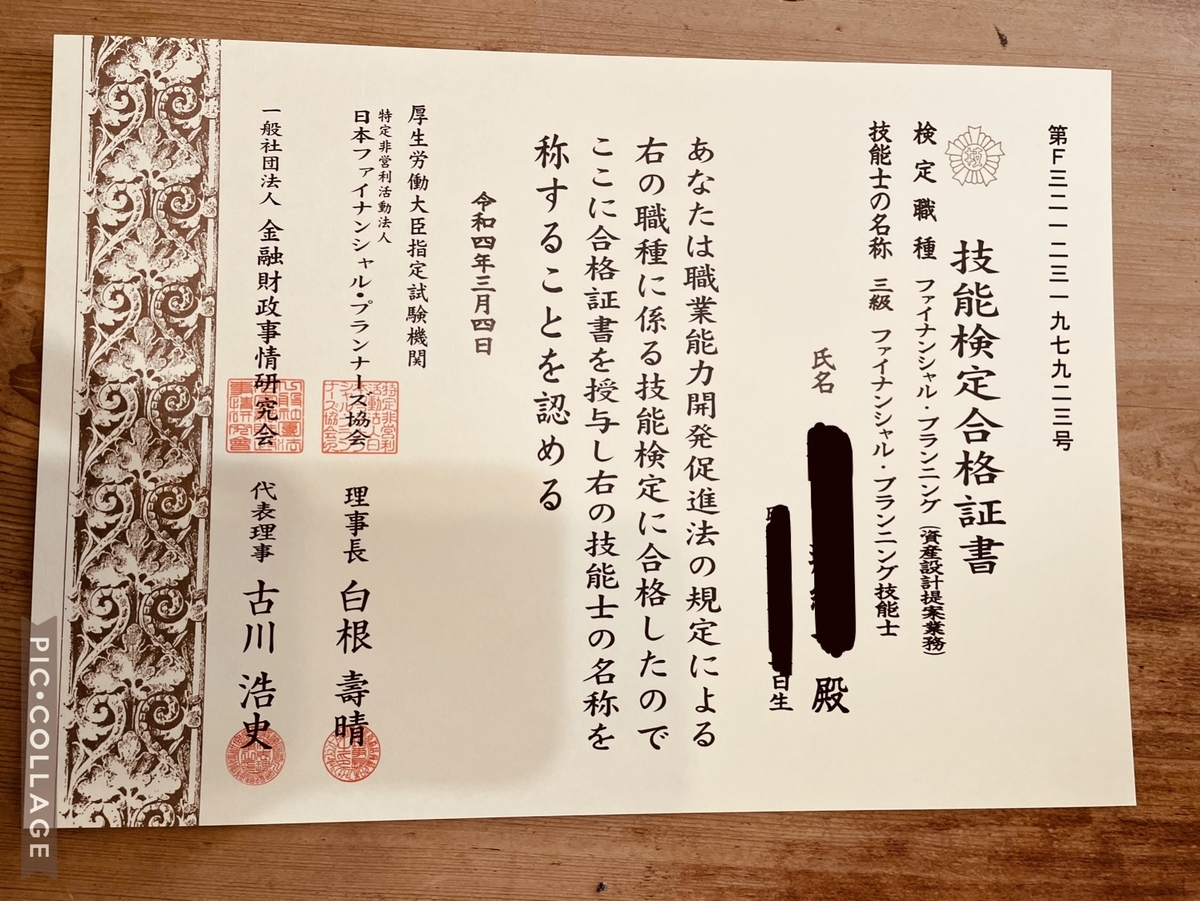 第F三二一二三一九七七九二三号
技能検定合格証書
検定職種 ファイナンシャル・プランニング(資産設計提案業務)
技能士の名称 三級 ファイナンシャル・プランニング技能士
氏名 殿
日生
あなたは職業能力開発促進法の規定による
右の職種に係る技能検定に合格したので
ここに合格証書を授与し右の技能士の名称を
称することを認める
令和四年三月四日
厚生労働大臣指定試験機関
特定非営利活動法人
日本ファイナンシャル・プランナーズ協会 理事長 白根 壽晴
一般社団法人 金融財政事情研究会 代表理事 古川 浩史
PIC・COLLAGE